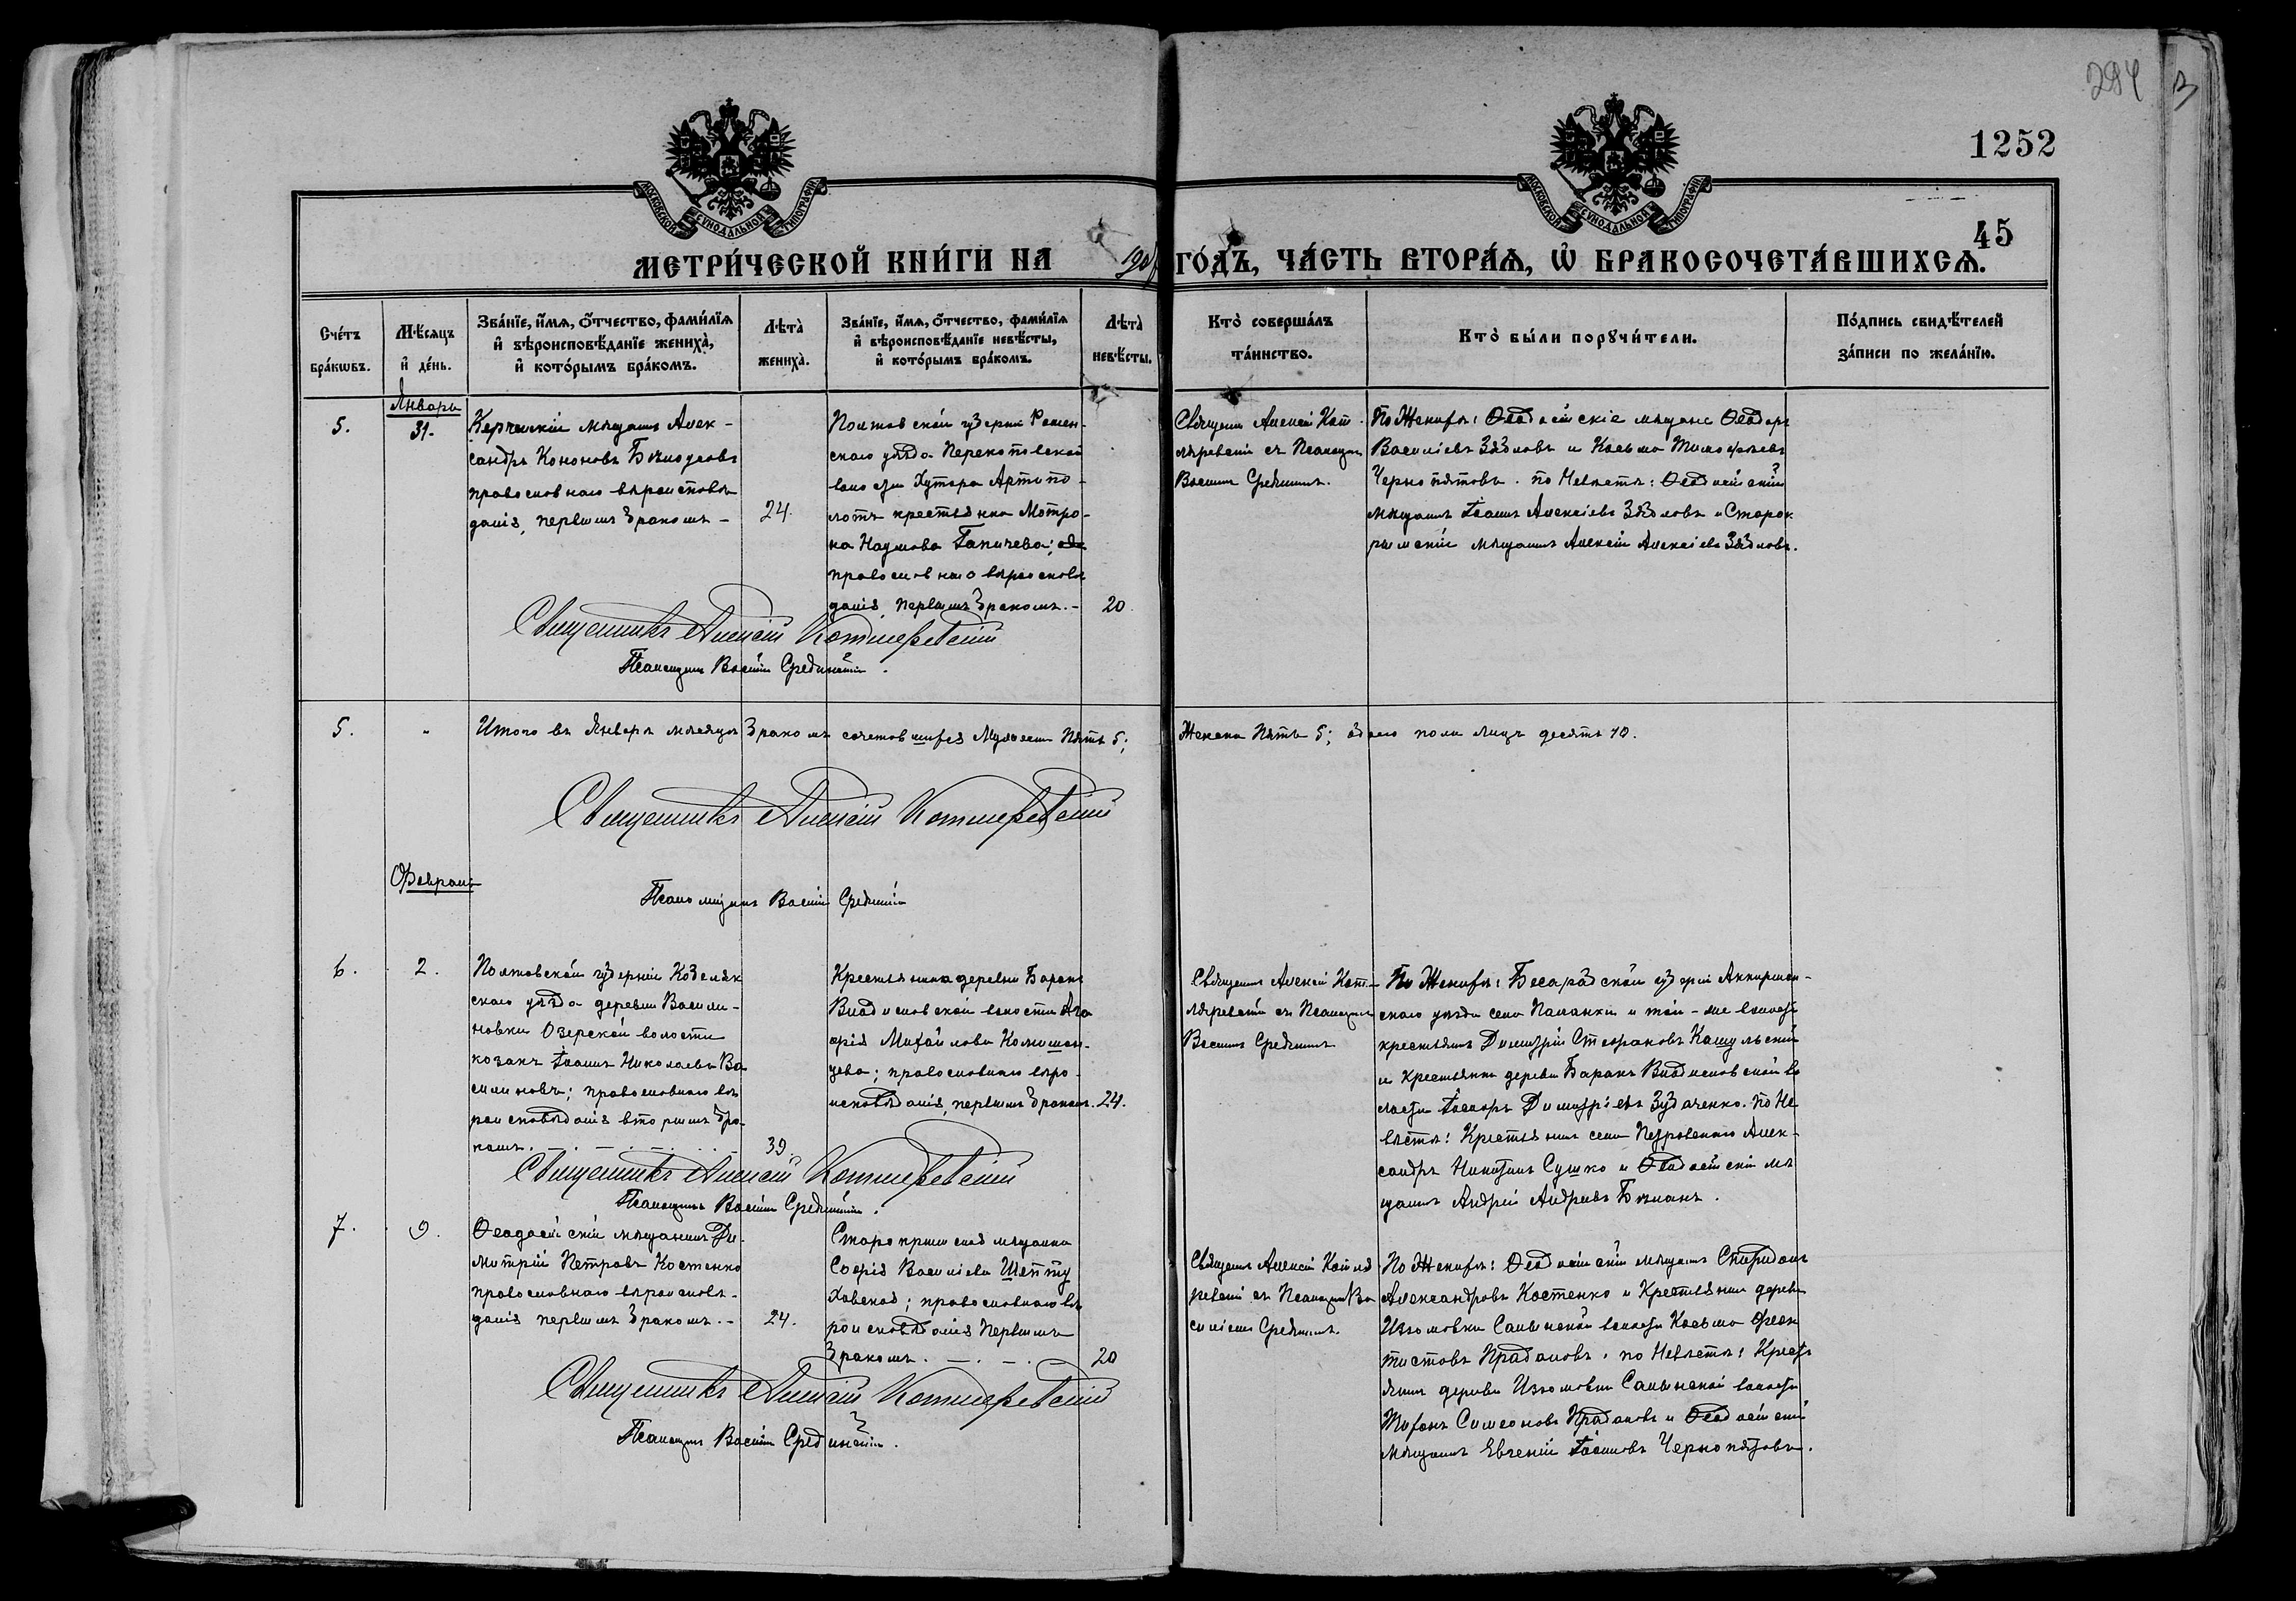 294
1252
45
МОСКОВСКОЙ СУНОДАЛЬНОЙ ТИПОГРАФІИ
МОСКОВСКОЙ СУНОДАЛЬНОЙ ТИПОГРАФІИ
МЕТРИ́ЧЕСКОЙ КНИ́ГИ НА ГО́ДЪ, ЧА́СТЬ ВТОРА́Ѧ, Ѽ БРАКОСОЧЕТА́ВШИХСѦ.
Сче́тъ бра́кѡвъ.
Мѣ́сяцъ и де́нь.
Зва́нїе, и́мѧ, о́тчество, фами́лїѧ и вѣроисповѣ́данїе жениха̀, и кото́рымъ бра́комъ.
Лѣта̀ жениха̀.
Зва́нїе, и́мѧ, о́тчество, фами́лїѧ и вѣроисповѣ́данїе невѣ́сты, и кото́рымъ бра́комъ.
Лѣта̀ невѣ́сты.
Кто̀ соверша́лъ та́инство.
Кто̀ бы́ли порꙋчи́тели.
По́дпись свидѣ́телей за́писи по жела́нїю.
Январь
5.
31.
Керченскій мѣщанинъ Алек-
сандръ Кононовъ
православнаго вѣроисповѣ
данія, первымъ бракомъ –
24.
Полтавской губерніи Ромен-
скаго уѣзда Перекоповской
волости Хутора Артопо-
лотъ крестьянка Мотро-
на Наумова
православнаго вѣроисповѣ
данія, первымъ бракомъ. –
20
Священникъ Алексій Кот-
ляревскій съ Псаломщ.
Василіемъ Срединскимъ.
По Женихѣ: Ѳеодосійскіе мѣщане Ѳеодоръ
Василіевъ Зябловъ и Косьма Тимоѳеевъ
Чернопятовъ. по Невѣстѣ: Ѳеодосійскій
мѣщанинъ Іоаннъ Алексіевъ Зябловъ и Старок
рымскій мѣщанинъ Алексій Алексіевъ Зябловъ.
Священникъ Алексій Котляревскій
Псаломщикъ Василій Срединскій.
5.
"
Итого въ Январѣ мѣсяцѣ бракомъ сочетавшихся Мужеска Пять 5;
Женска Пять 5; обоего пола лицъ десять 10.
Священникъ Алексій Котляревскій
Февраль
Псаломщикъ Василій Срединскій
6.
2.
Полтавской губерніи Кобеляк
скаго уѣзда деревни Васили-
новки Озерской волости
козакъ Іоаннъ Николаевъ Ва
силиновъ; православнаго вѣ
роисповѣданія вторымъ бра-
комъ.
39.
Крестьянка деревни Баракъ
Владиславской волости Ага
фія Михайлова
православнаго вѣро-
исповѣданія, первымъ бракомъ.
24.
Священникъ Алексій Кот-
ляревскій съ Псаломщ.
Василіемъ Срединскимъ
По Женихѣ: Бесарабской губерніи Аккерман-
скаго уѣзда села Паланки и той-же волости
крестьянинъ Димитрій Стефановъ
и Крестьянинъ деревни Баракъ Владиславской во
лости Димитріевъ Зубаченко. По Не
вѣстѣ: Крестьянинъ села Петровскаго Алек-
сандръ Никитинъ Сушко и Ѳеодосійскій мѣ
щанинъ Андрей Андреевъ
Священникъ Алексій Котляревскій
Псаломщикъ Василій Срединскій.
7.
9.
Ѳеодосійскій мѣщанинъ Ди-
митрій Петровъ Костенко
православнаго вѣроисповѣ-
данія первымъ бракомъ. –
24.
Старокрымская мѣщанка
Софія Василіева Шепту
ховская; православнаго вѣ
роисповѣданія Первымъ
бракомъ.
20
Священникъ Алексій Котля
ревскій съ Псаломщ. Ва
силіемъ Срединскимъ.
По Женихѣ: Ѳеодосійскій мѣщанинъ Спиридонъ
Александровъ Костенко и Крестьянинъ деревни
Изюмовки Салынской волости Косьма Феок
тистовъ Прадановъ. по Невѣстѣ: Кресть
янинъ деревни Изюмовки Салынской волости
Тихонъ Симеоновъ Прадановъ и Ѳеодосійскій
мѣщанинъ Евгеній Іоанновъ Чернопятовъ.
Священникъ Алексій Котляревскій
Псаломщикъ Василій Срединскій.